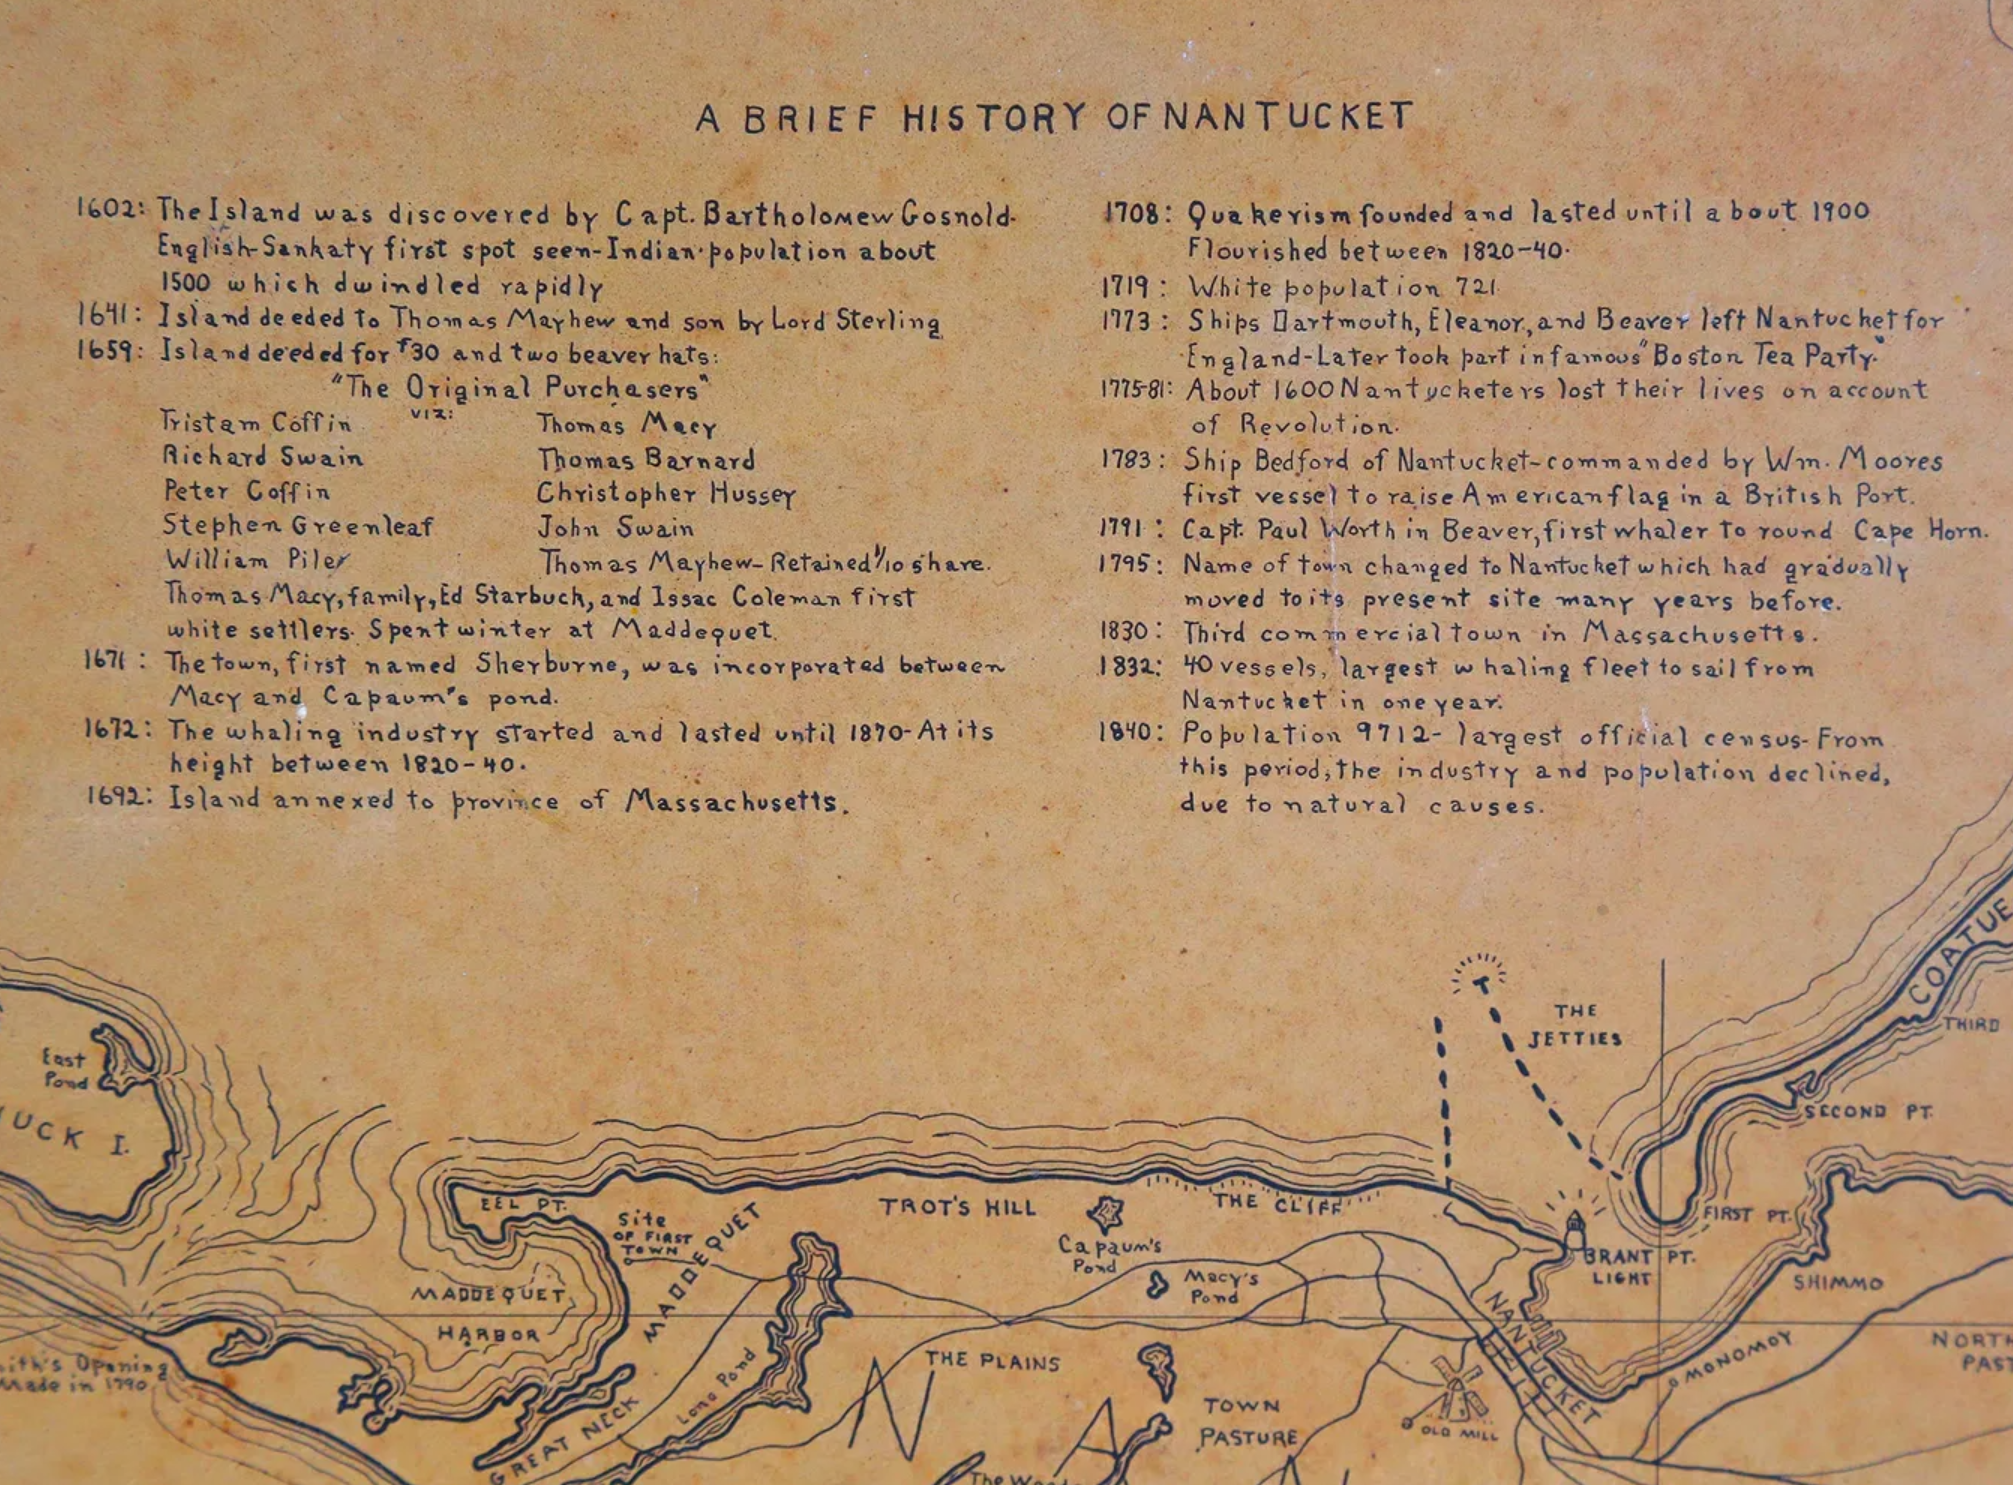 A BRIEF HISTORY OF NANTUCKET
1602: The Island was discovered by Capt. Bartholomew Gosnold-
English-Sankaty first spot seen-Indian population about
1500 which dwindled rapidly
1641: Island deeded to Thomas Mayhew and son by Lord Sterling
1659: Island deeded for £30 and two beaver hats:
"The Original Purchasers"
viz:
Tristam Coffin Thomas Macy
Richard Swain Thomas Barnard
Peter Coffin Christopher Hussey
Stephen Greenleaf John Swain
William Piler Thomas Mayhew-Retained 1/10 share.
Thomas Macy, family, Ed Starbuck, and Issac Coleman first
white settlers. Spent winter at Maddequet.
1671: The town, first named Sherburne, was incorporated between
Macy and Capaum's pond.
1672: The whaling industry started and lasted until 1870-At its
height between 1820-40.
1692: Island annexed to province of Massachusetts.
1708: Quakerism founded and lasted until about 1900
Flourished between 1820-40.
1719: White population 721
1773: Ships Dartmouth, Eleanor, and Beaver left Nantucket for
England-Later took part in famous "Boston Tea Party."
1775-81: About 1600 Nantucketers lost their lives on account
of Revolution.
1783: Ship Bedford of Nantucket-commanded by Wm. Moores
first vessel to raise American flag in a British Port.
1791: Capt. Paul Worth in Beaver, first whaler to round Cape Horn.
1795: Name of town changed to Nantucket which had gradually
moved to its present site many years before.
1830: Third commercial town in Massachusetts.
1832: 40 vessels, largest whaling fleet to sail from
Nantucket in one year.
1840: Population 9712- largest official census-From
this period, the industry and population declined,
due to natural causes.
COATUE
THE
JETTIES
THIRD
East
Pond
UCK I.
SECOND PT.
EEL PT.
Site
OF FIRST
TOWN
MADDEQUET
TROT'S HILL
THE CLIFF
Capaum's
Pond
Macy's
Pond
FIRST PT.
BRANT PT.
LIGHT
SHIMMO
MADDEQUET
HARBOR
NANTUCKET
MONOMOY
NORTH
PAST
ith's Opening
Made in 1790
Long Pond
THE PLAINS
GREAT NECK
N
A
TOWN
PASTURE
OLD MILL
The